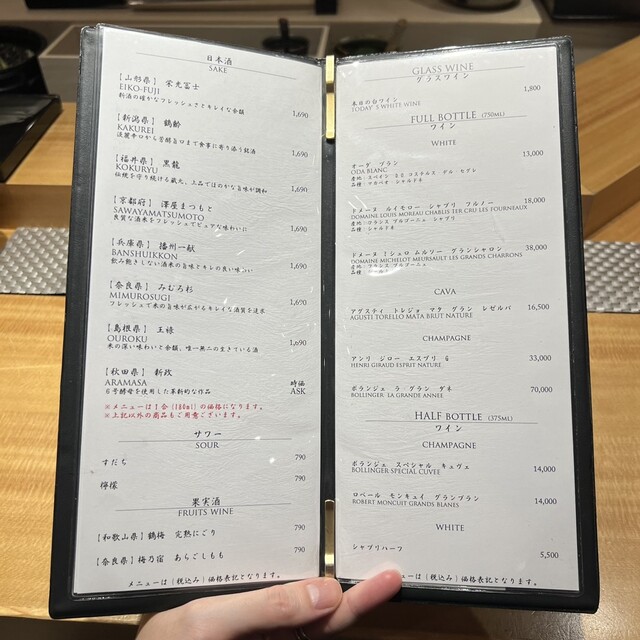 日本酒
SAKE
【山形県】 栄光冨士
EIKO-FUJI
新酒の確かなフレッシュさとキレイな余韻 1,690
【新潟県】 鶴齢
KAKUREI
淡麗辛口から芳醇旨口まで食事に寄り添う銘酒 1,690
【福井県】 黒龍
KOKURYU
伝統を守り続ける蔵元、上品でほのかな旨味が調和 1,690
【京都府】 澤屋まつもと
SAWAYAMATSUMOTO
良質な酒米をフレッシュでピュアな味わいに 1,690
【兵庫県】 播州一献
BANSHUIKKON
飲み飽きしない酒米の旨味とキレの良い味わい 1,690
【奈良県】 みむろ杉
MIMUROSUGI
フレッシュで米の旨味が広がるキレイな酒質を追求 1,690
【島根県】 王祿
OUROKU
米の深い味わいと余韻、唯一無二の生きている酒 1,690
【秋田県】 新政
ARAMASA 時価
6号酵母を使用した革新的な作品 ASK
※メニューは1合(180ml)の価格になります。
※上記以外の商品もご用意ございます。
サワー
SOUR
すだち 790
檸檬 790
果実酒
FRUITS WINE
【和歌山県】鶴梅 完熟にごり 790
【奈良県】梅乃宿 あらごしもも 790
メニューは(税込み)価格表記となります。
GLASS WINE
グラスワイン
本日の白ワイン 1,800
TODAY'S WHITE WINE
FULL BOTTLE (750ML)
ワイン
WHITE
オーダ ブラン 13,000
ODA BLANC
産地: スペイン D.O コステルス デル セグレ
品種: マカベオ シャルドネ
ドメーヌ ルイモロー シャブリ フルノー 18,000
DOMAINE LOUIS MOREAU CHABLIS 1ER CRU LES FOURNEAUX
産地: フランス ブルゴーニュ シャブリ
品種: シャルドネ
ドメーヌ ミシェロ ムルソー グランシャロン 38,000
DOMAINE MICHELOT MEURSAULT LES GRANDS CHARRONS
産地: フランス ブルゴーニュ
CAVA
アグスティ トレジョ マタ グラン レゼルバ 16,500
AGUSTI TORELLO MATA BRUT NATURE
CHAMPAGNE
アンリ ジロー エスプリ G 33,000
HENRI GIRAUD ESPRIT NATURE
ボランジェ ラ グラン ダネ 70,000
BOLLINGER LA GRANDE ANNEE
HALF BOTTLE (375ML)
ワイン
CHAMPAGNE
ボランジェ スペシャル キュヴェ 14,000
BOLLINGER SPECIAL CUVEE
ロベール モンキュイ グランブラン 14,000
ROBERT MONCUIT GRANDS BLANES
WHITE
シャブリハーフ 5,500
ューは(税込み)価格表記となります。